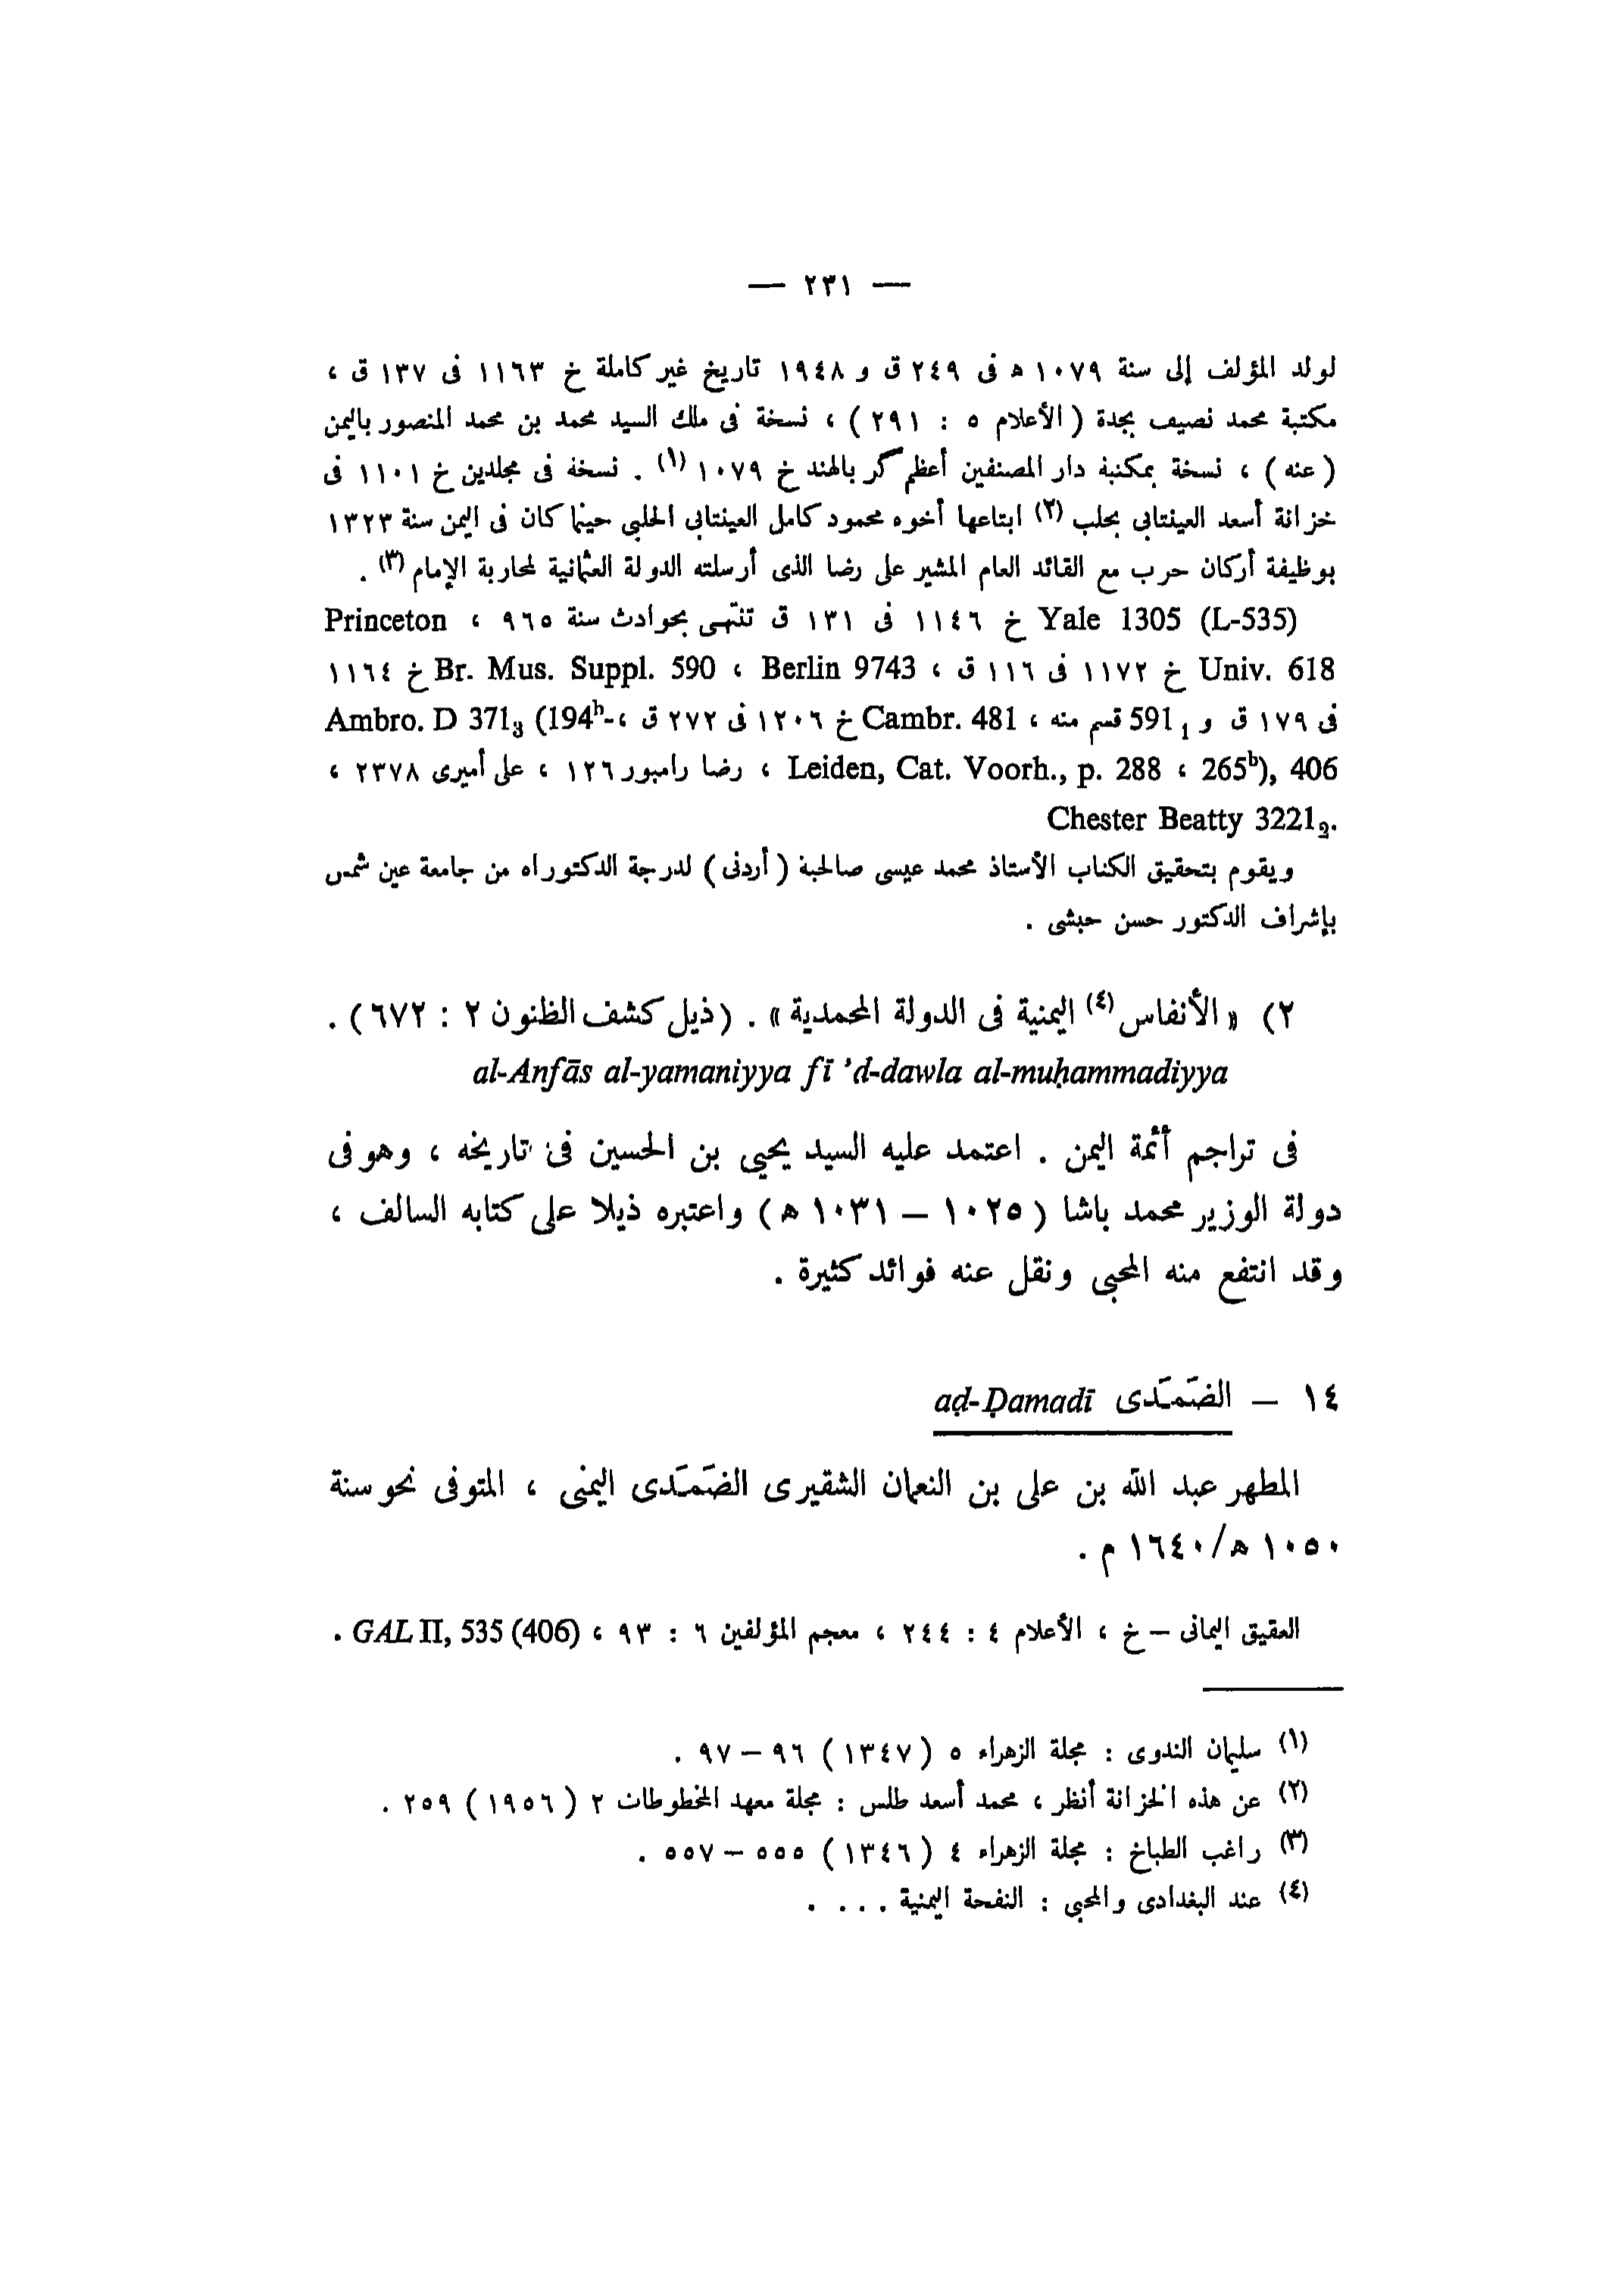 — ٢٣١ —
لولد المؤلف إلى سنة ١٠٧٩ ه فى ٢٤٩ ق و ١٩٤٨ تاريخ غير كاملة خ ١١٦٣ فى ١٣٧ ق ،
مكتبة محمد نصيف بجدة ( الأعلام ٥ : ٢٩١ ) ، نسخة فى ملك السيد محمد بن محمد المنصور باليمن
( عنه ) ، نسخة بمكتبة دار المصنفين أعظم گر بالهند خ ١٠٧٩ (١) . نسخة فى مجلدين خ ١١٠١ فى
خزانة أسعد العينتابى بحلب (٢) ابتاعها أخوه محمود كامل العينتابى الحلبى حينما كان فى اليمن سنة ١٣٢٣
بوظيفة أركان حرب مع القائد العام المشير على رضا الذى أرسلته الدولة العثمانية لمحاربة الإمام (٣) .
Yale 1305 (L-535) خ ١١٤٦ فى ١٣١ ق تنتهى بحوادث سنة ٩٦٥ ، Princeton
Univ. 618 خ ١١٧٢ فى ١١٦ ق ، Berlin 9743 ، Br. Mus. Suppl. 590 خ ١١٦٤
فى ١٧٩ ق و 591₁ قسم منه ، Cambr. 481 خ ١٢٠٦ فى ٢٧٢ ق ، Ambro. D 371₃ (194ʰ-
265ᵇ), 406 ، Leiden, Cat. Voorh., p. 288 ، رضا رامبور ١٢٦ ، على أميرى ٢٣٧٨ ،
Chester Beatty 3221₂.
ويقوم بتحقيق الكتاب الأستاذ محمد عيسى صالحية ( أردنى ) لدرجة الدكتوراه من جامعة عين شمس
بإشراف الدكتور حسن حبشى .
٢) « الأنفاس (٤) اليمنية فى الدولة المحمدية » . (ذيل كشف الظنون ٢ : ٦٧٢) .
al-Anfās al-yamaniyya fī ’d-dawla al-muḥammadiyya
فى تراجم أئمة اليمن . اعتمد عليه السيد يحيى بن الحسين فى تاريخه ، وهو فى
دولة الوزير محمد باشا ( ١٠٢٥ – ١٠٣١ ه ) واعتبره ذيلا على كتابه السالف ،
وقد انتفع منه المحبى ونقل عنه فوائد كثيرة .
١٤ – الضَمَدى aḍ-Ḍamadī
المطهر عبد الله بن على بن النعمان الشقيرى الضَمَدى اليمنى ، المتوفى نحو سنة
١٠٥٠ ه/١٦٤٠ م .
العقيق اليمانى – خ ، الأعلام ٤ : ٢٤٤ ، معجم المؤلفين ٦ : ٩٣ ، GAL II, 535 (406) .
(١) سليمان الندوى : مجلة الزهراء ٥ ( ١٣٤٧ ) ٩٦ – ٩٧ .
(٢) عن هذه الخزانة أنظر ، محمد أسعد طلس : مجلة معهد المخطوطات ٢ ( ١٩٥٦ ) ٢٥٩ .
(٣) راغب الطباخ : مجلة الزهراء ٤ ( ١٣٤٦ ) ٥٥٥ – ٥٥٧ .
(٤) عند البغدادى والمحبى : النفحة اليمنية . . . .